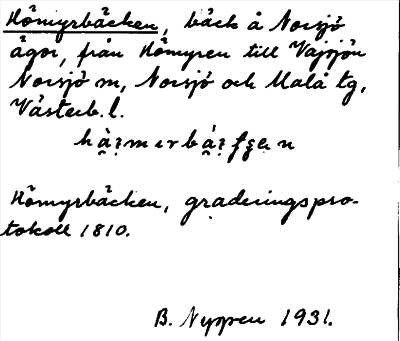 Hömyrbäcken, bäck å Norsjö
ägor, från Hömyren till Vajsjön
Norsjö sn, Norsjö och Malå tg,
Västerb. l.
Hömyrbäcken, graderingspro-
tokoll 1810.
B. Nyppen 1931.